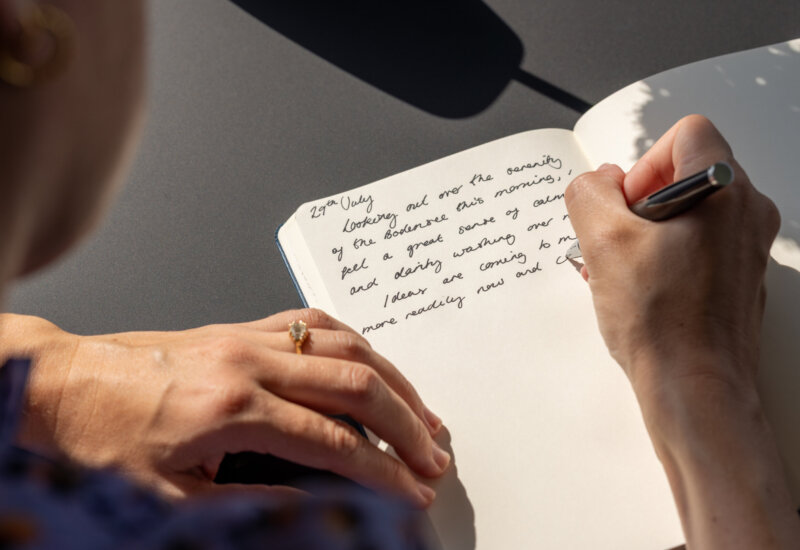 29th July
Looking out over the serenity
of the Bodensee this morning, I
feel a great sense of calm
and clarity washing over m
Ideas are coming to m
more readily now and c